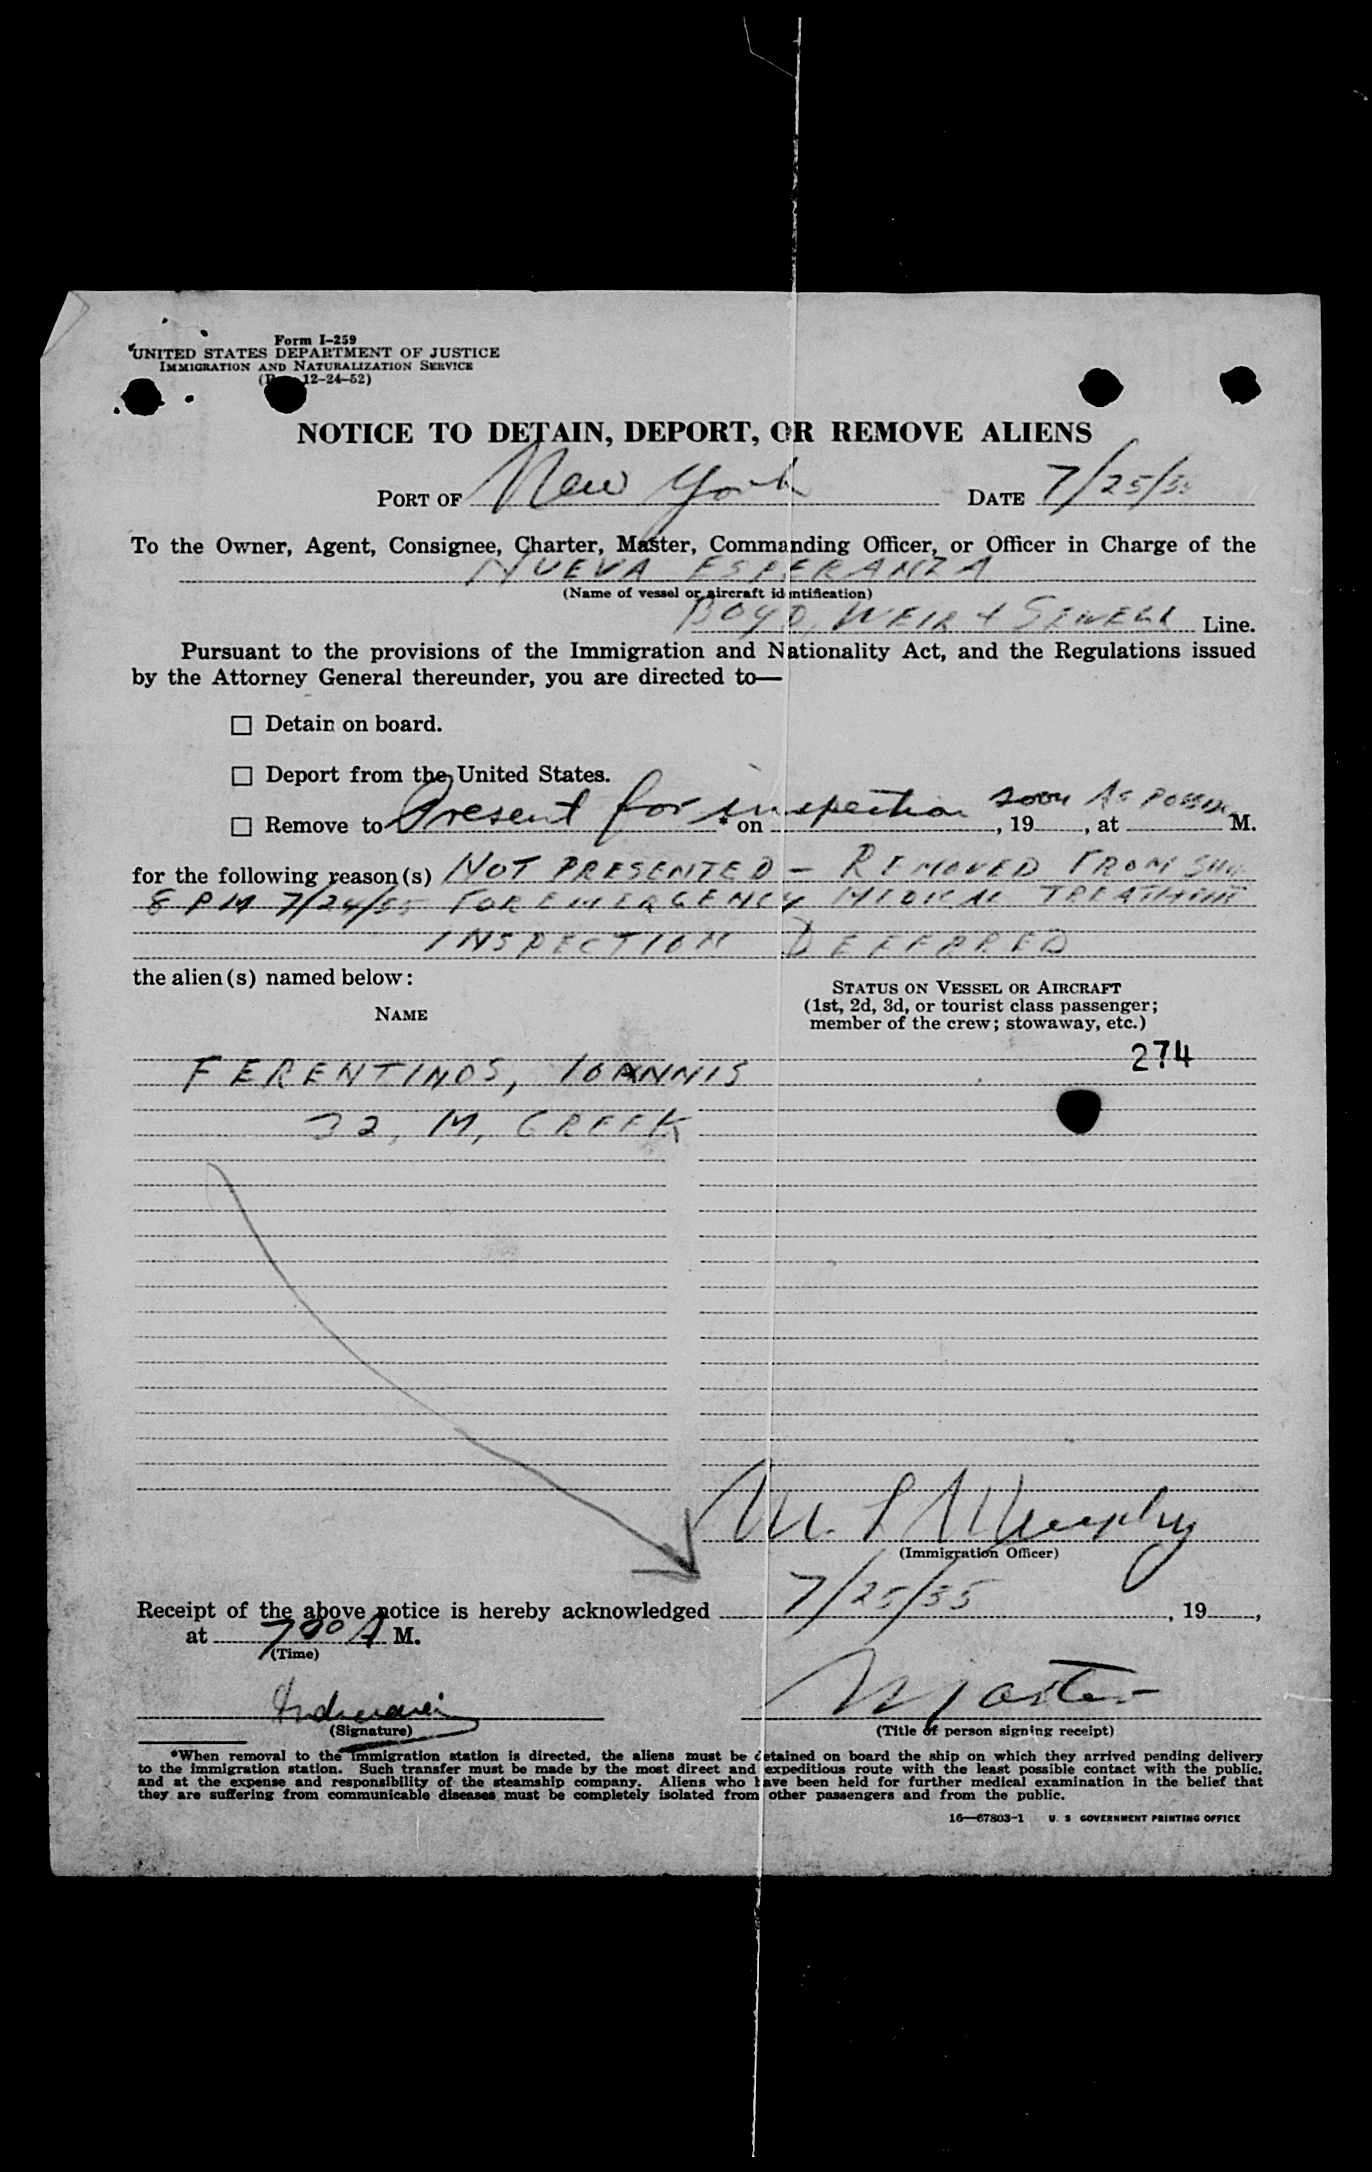 Form I-259
UNITED STATES DEPARTMENT OF JUSTICE
IMMIGRATION AND NATURALIZATION SERVICE
12-24-52)
NOTICE TO DETAIN, DEPORT, OR REMOVE ALIENS
PORT OF New York DATE 7/25/55
To the Owner, Agent, Consignee, Charter, Master, Commanding Officer, or Officer in Charge of the
NUEVA ESPERANZA
(Name of vessel or aircraft identification)
BOYD, WEIR & SEWELL Line.
Pursuant to the provisions of the Immigration and Nationality Act, and the Regulations issued
by the Attorney General thereunder, you are directed to—
☐ Detain on board.
☐ Deport from the United States.
☐ Remove to Present for inspection soon As possible * on , 19 , at M.
for the following reason(s) NOT PRESENTED - REMOVED FROM SHIP
8 PM 7/24/55 FOR EMERGENCY MEDICAL TREATMENT
INSPECTION DEFERRED
the alien(s) named below:
NAME
STATUS ON VESSEL OR AIRCRAFT
(1st, 2d, 3d, or tourist class passenger;
member of the crew; stowaway, etc.)
274
FERENTINOS, IOANNIS
32, M, GREEK
M. L. Murphy
(Immigration Officer)
Receipt of the above notice is hereby acknowledged 7/25/55 , 19 ,
at 700 A M.
(Time)
Master
(Signature)
(Title of person signing receipt)
*When removal to the immigration station is directed, the aliens must be detained on board the ship on which they arrived pending delivery
to the immigration station. Such transfer must be made by the most direct and expeditious route with the least possible contact with the public,
and at the expense and responsibility of the steamship company. Aliens who have been held for further medical examination in the belief that
they are suffering from communicable diseases must be completely isolated from other passengers and from the public.
16—67803-1 U. S GOVERNMENT PRINTING OFFICE